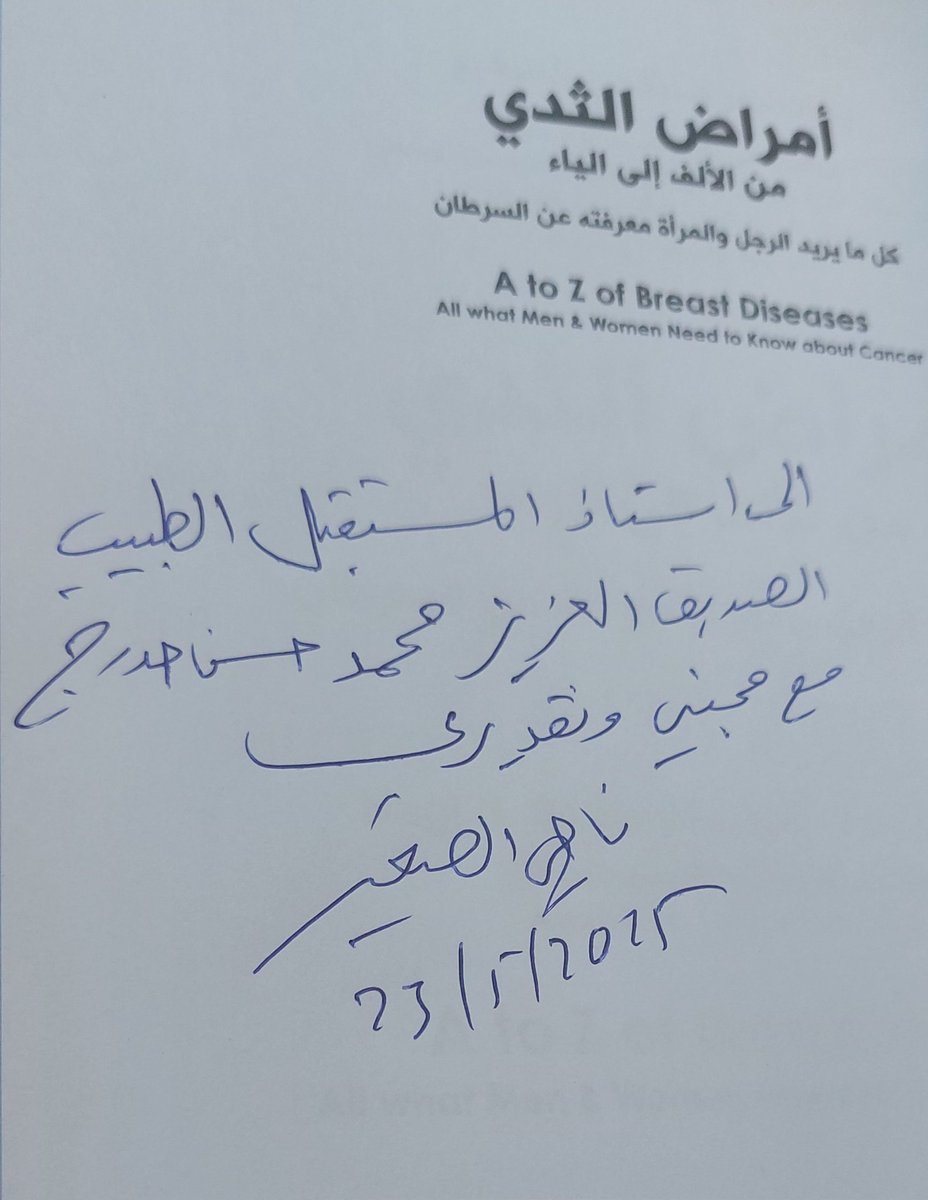 أمراض الثدي
من الألف إلى الياء
كل ما يريد الرجل والمرأة معرفته عن السرطان
A to Z of Breast Diseases
All what Men & Women Need to Know about Cancer
الى استاذ المستقبل الطبيب
الصديق العزيز محمد حسن حدرج
مع محبتي وتقديري
ناجي الصغير
23/5/2025